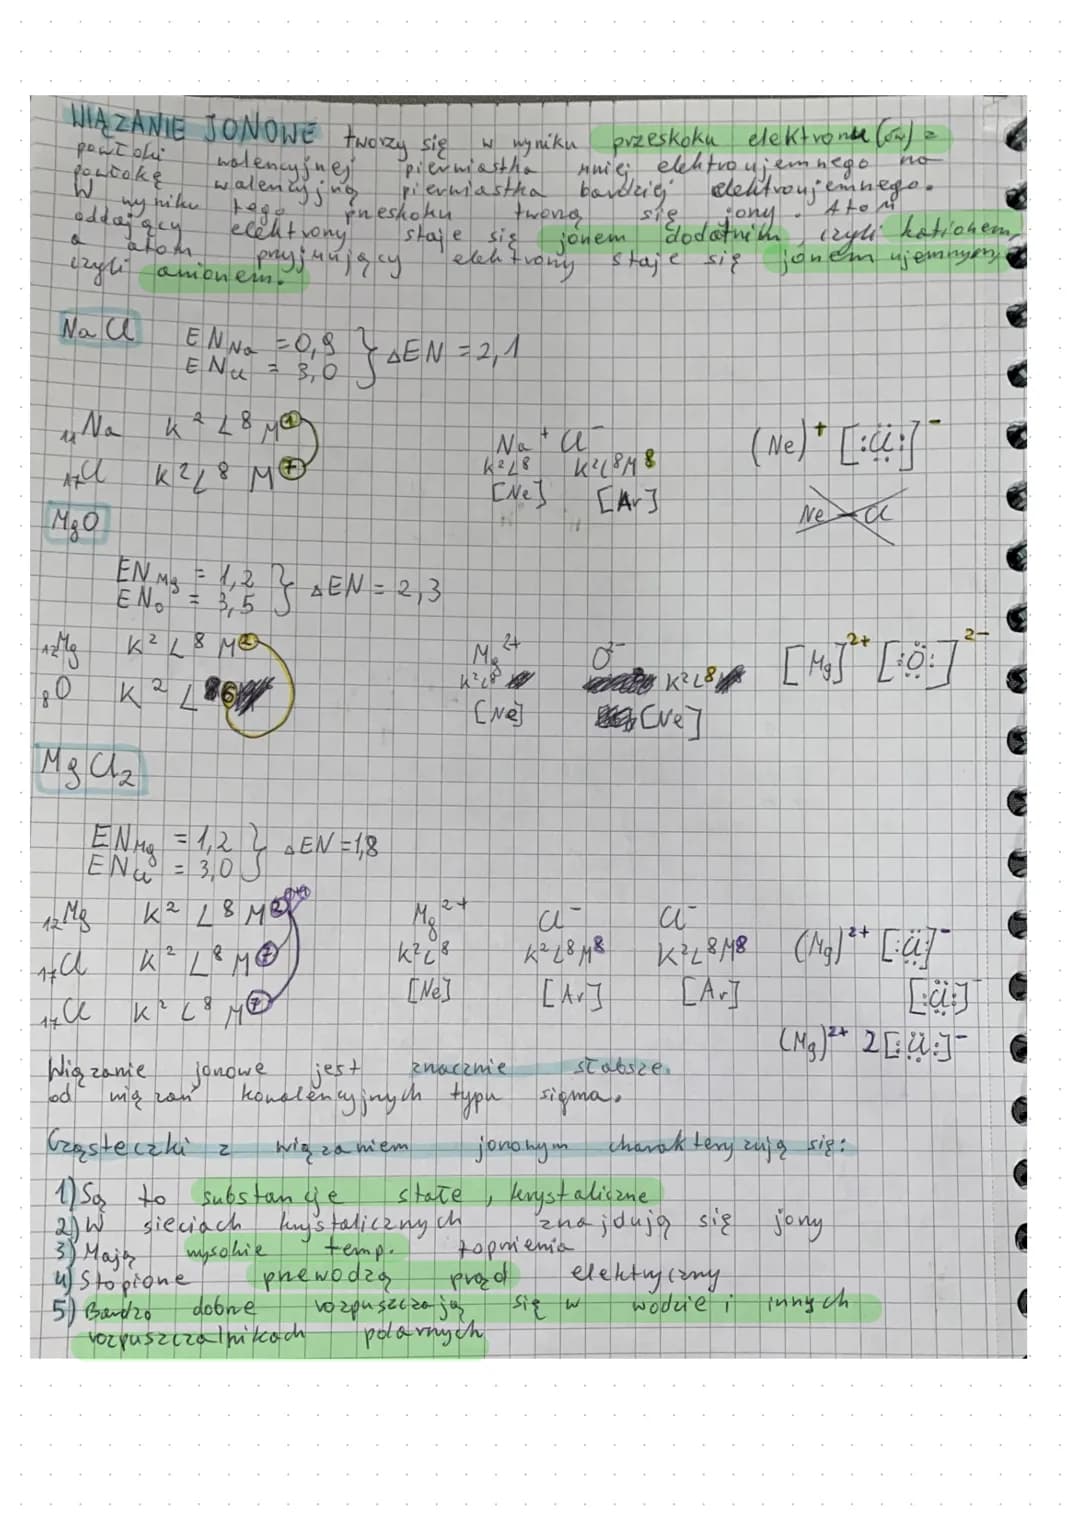 WIĄZANIE JONOWE tworzy się w wyniku przeskoku elektronu (ów) z
powłoki walencyjnej pierwiastka mniej elektroujemnego na
powłokę walencyjną pierwiastka bardziej elektroujemnego.
W wyniku tego przeskoku tworzą się jony. Atom
oddający elektrony staje się jonem dodatnim, czyli kationem,
a atom przyjmujący elektrony staje się jonem ujemnym,
czyli anionem.
NaCl
EN Na = 0,9 } ΔEN = 2,1
EN Cl = 3,0
₁₁Na K² L⁸ M¹
₁₇Cl K² L⁸ M⁷
Na⁺ Cl⁻
K²L⁸ K²L⁸M⁸
[Ne] [Ar]
(Ne)⁺ [:C̈l̤:]⁻
Ne Cl
MgO
EN Mg = 1,2 } ΔEN = 2,3
EN O = 3,5
₁₂Mg K² L⁸ M²
₈O K² L⁶
Mg²⁺ O²⁻
K²L⁸ K²L⁸
[Ne] [Ne]
[Mg]²⁺ [:Ö̤:]²⁻
MgCl₂
EN Mg = 1,2 } ΔEN = 1,8
EN Cl = 3,0
₁₂Mg K² L⁸ M²
₁₇Cl K² L⁸ M⁷
₁₇Cl K² L⁸ M⁷
Mg²⁺ Cl⁻ Cl⁻
K²L⁸ K²L⁸M⁸ K²L⁸M⁸
[Ne] [Ar] [Ar]
(Mg)²⁺ [:C̈l̤:]⁻
[:C̈l̤:]⁻
(Mg)²⁺ 2[:C̈l̤:]⁻
Wiązanie jonowe jest znacznie słabsze
od wiązań kowalencyjnych typu sigma.
Cząsteczki z wiązaniem jonowym charakteryzują się:
1) Są to substancje stałe, krystaliczne
2) W sieciach krystalicznych znajdują się jony
3) Mają wysokie temp. topnienia
4) Stopione przewodzą prąd elektryczny
5) Bardzo dobrze rozpuszczają się w wodzie i innych
rozpuszczalnikach polarnych